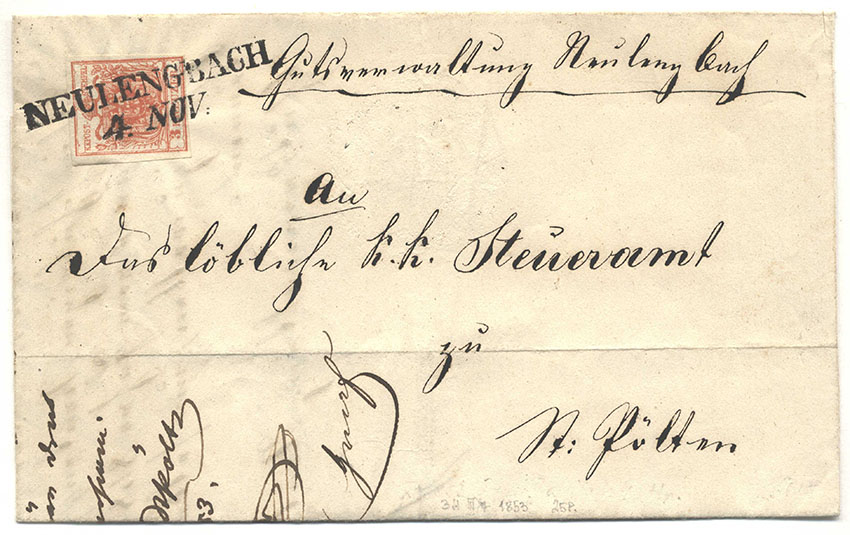 NEULENGBACH
4. NOV.
Gutsverwaltung Neulengbach
An
Das löbliche k. k. Steueramt
zu
St: Pölten
53.
1853 25P.